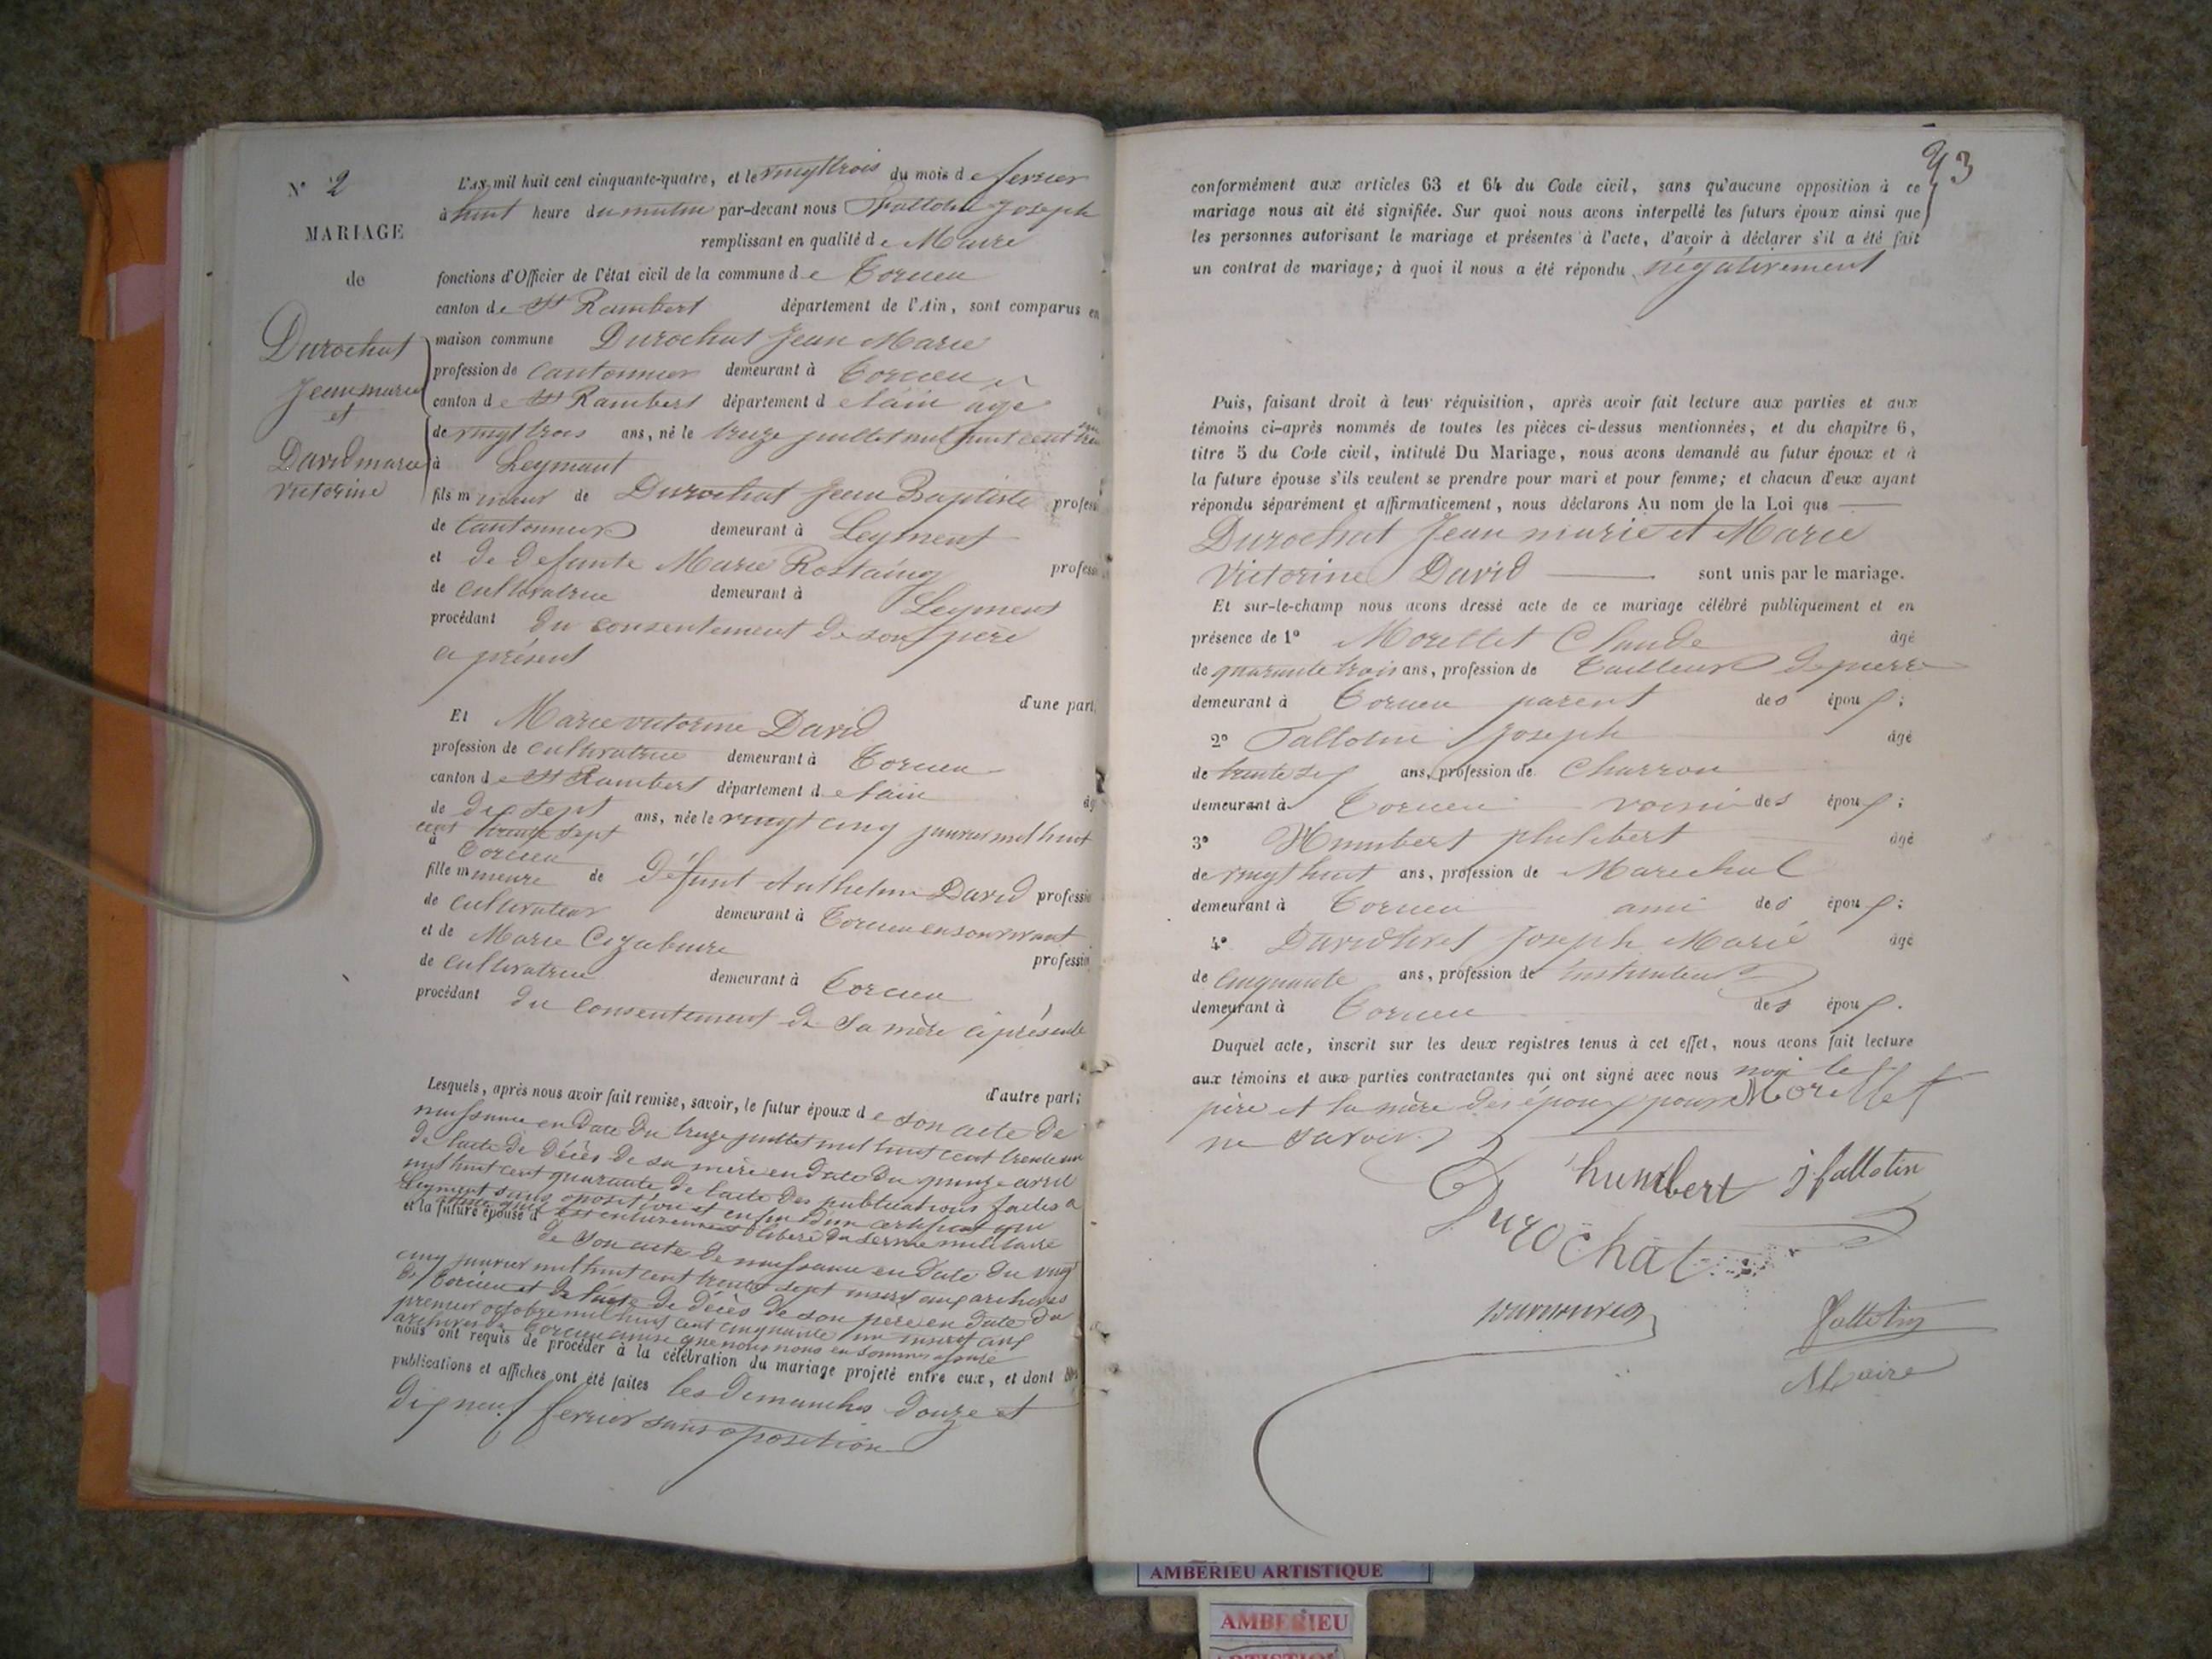 N° 2
MARIAGE
de
Durochat
Jean marie
et
David marie
victorine
L'an mil huit cent cinquante-quatre, et le vingt trois du mois de fevrier
à huit heure du matin par-devant nous Fallotin Joseph
remplissant en qualité de Maire
fonctions d'Officier de l'état civil de la commune de Torcieu
canton de St Rambert département de l'Ain, sont comparus en
maison commune Durochat Jean Marie
profession de cantonnier demeurant à Torcieu
canton de St Rambert département de lain age
de vingt trois ans, né le treize juillet mil huit cent
à Leymant
fils mineur de Durochat Jean Baptiste profess
de Cantonnier demeurant à Leyment
et de Defunte Marie Rostaing profess
de cultivatrice demeurant à Leyment
procédant du consentement de son père
ci présent
d'une part,
Et Marie victorine David
profession de cultivatrice demeurant à Torcieu
canton de St Rambert département de lain
de dix sept ans, née le vingt cinq janvier mil huit
cent trente sept
à Torcieu
fille mineure de Défunt Anthelme David profession
de cultivateur demeurant à Torcieu en son vivant
et de Marie profession
de cultivatrice demeurant à Torcieu
procédant du consentement de sa mère ci présente
d'autre part;
Lesquels, après nous avoir fait remise, savoir, le futur époux de son acte de
naissance en date du treize juillet mil huit cent trente un
de lacte de décès de sa mère en date du quinze avril
mil huit cent quarante de lacte des publications faites a
Leyment sans oposition et enfin d'un certificat qui
atteste qu'il est entierement libéré du service militaire
et la future épouse d
de son acte de naissance en date du vingt
cinq janvier mil huit cent trente sept inscrit aux archives
de Torcieu et de lacte de décès de son père en date du
premier octobre mil huit cent cinquante un inscrit aux
archives de Torcieu ainsi que nous nous en sommes assuré
nous ont requis de procéder à la célébration du mariage projeté entre eux, et dont les
publications et affiches ont été faites les Dimanches Douze et
dix neuf fevrier sans oposition
93
conformément aux articles 63 et 64 du Code civil, sans qu'aucune opposition à ce
mariage nous ait été signifiée. Sur quoi nous avons interpellé les futurs époux ainsi que
les personnes autorisant le mariage et présentes à l'acte, d'avoir à déclarer s'il a été fait
un contrat de mariage; à quoi il nous a été répondu négativement
Puis, faisant droit à leur réquisition, après avoir fait lecture aux parties et aux
témoins ci-après nommés de toutes les pièces ci-dessus mentionnées, et du chapitre 6,
titre 5 du Code civil, intitulé Du Mariage, nous avons demandé au futur époux et à
la future épouse s'ils veulent se prendre pour mari et pour femme; et chacun d'eux ayant
répondu séparément et affirmativement, nous déclarons Au nom de la Loi que
Durochat Jean marie et Marie
Victorine David sont unis par le mariage.
Et sur-le-champ nous avons dressé acte de ce mariage célébré publiquement et en
présence de 1° Morellet Claude âgé
de quarante trois ans, profession de Tailleur de pierre
demeurant à Torcieu parent des époux;
2° Fallotin Joseph âgé
de trente six ans, profession de Charron
demeurant à Torcieu voisin des époux;
3° Humbert philibert âgé
de vingt huit ans, profession de Marechal
demeurant à Torcieu ami des époux;
4° Joseph Marie âgé
de cinquante ans, profession de instituteur
demeurant à Torcieu des époux.
Duquel acte, inscrit sur les deux registres tenus à cet effet, nous avons fait lecture
aux témoins et aux parties contractantes qui ont signé avec nous non le
père et la mère des époux pour Morellet
ne savoir
humbert j fallotin
Durochat
Fallotin
Maire
AMBERIEU ARTISTIQUE
AMBERIEU
ARTISTIQUE